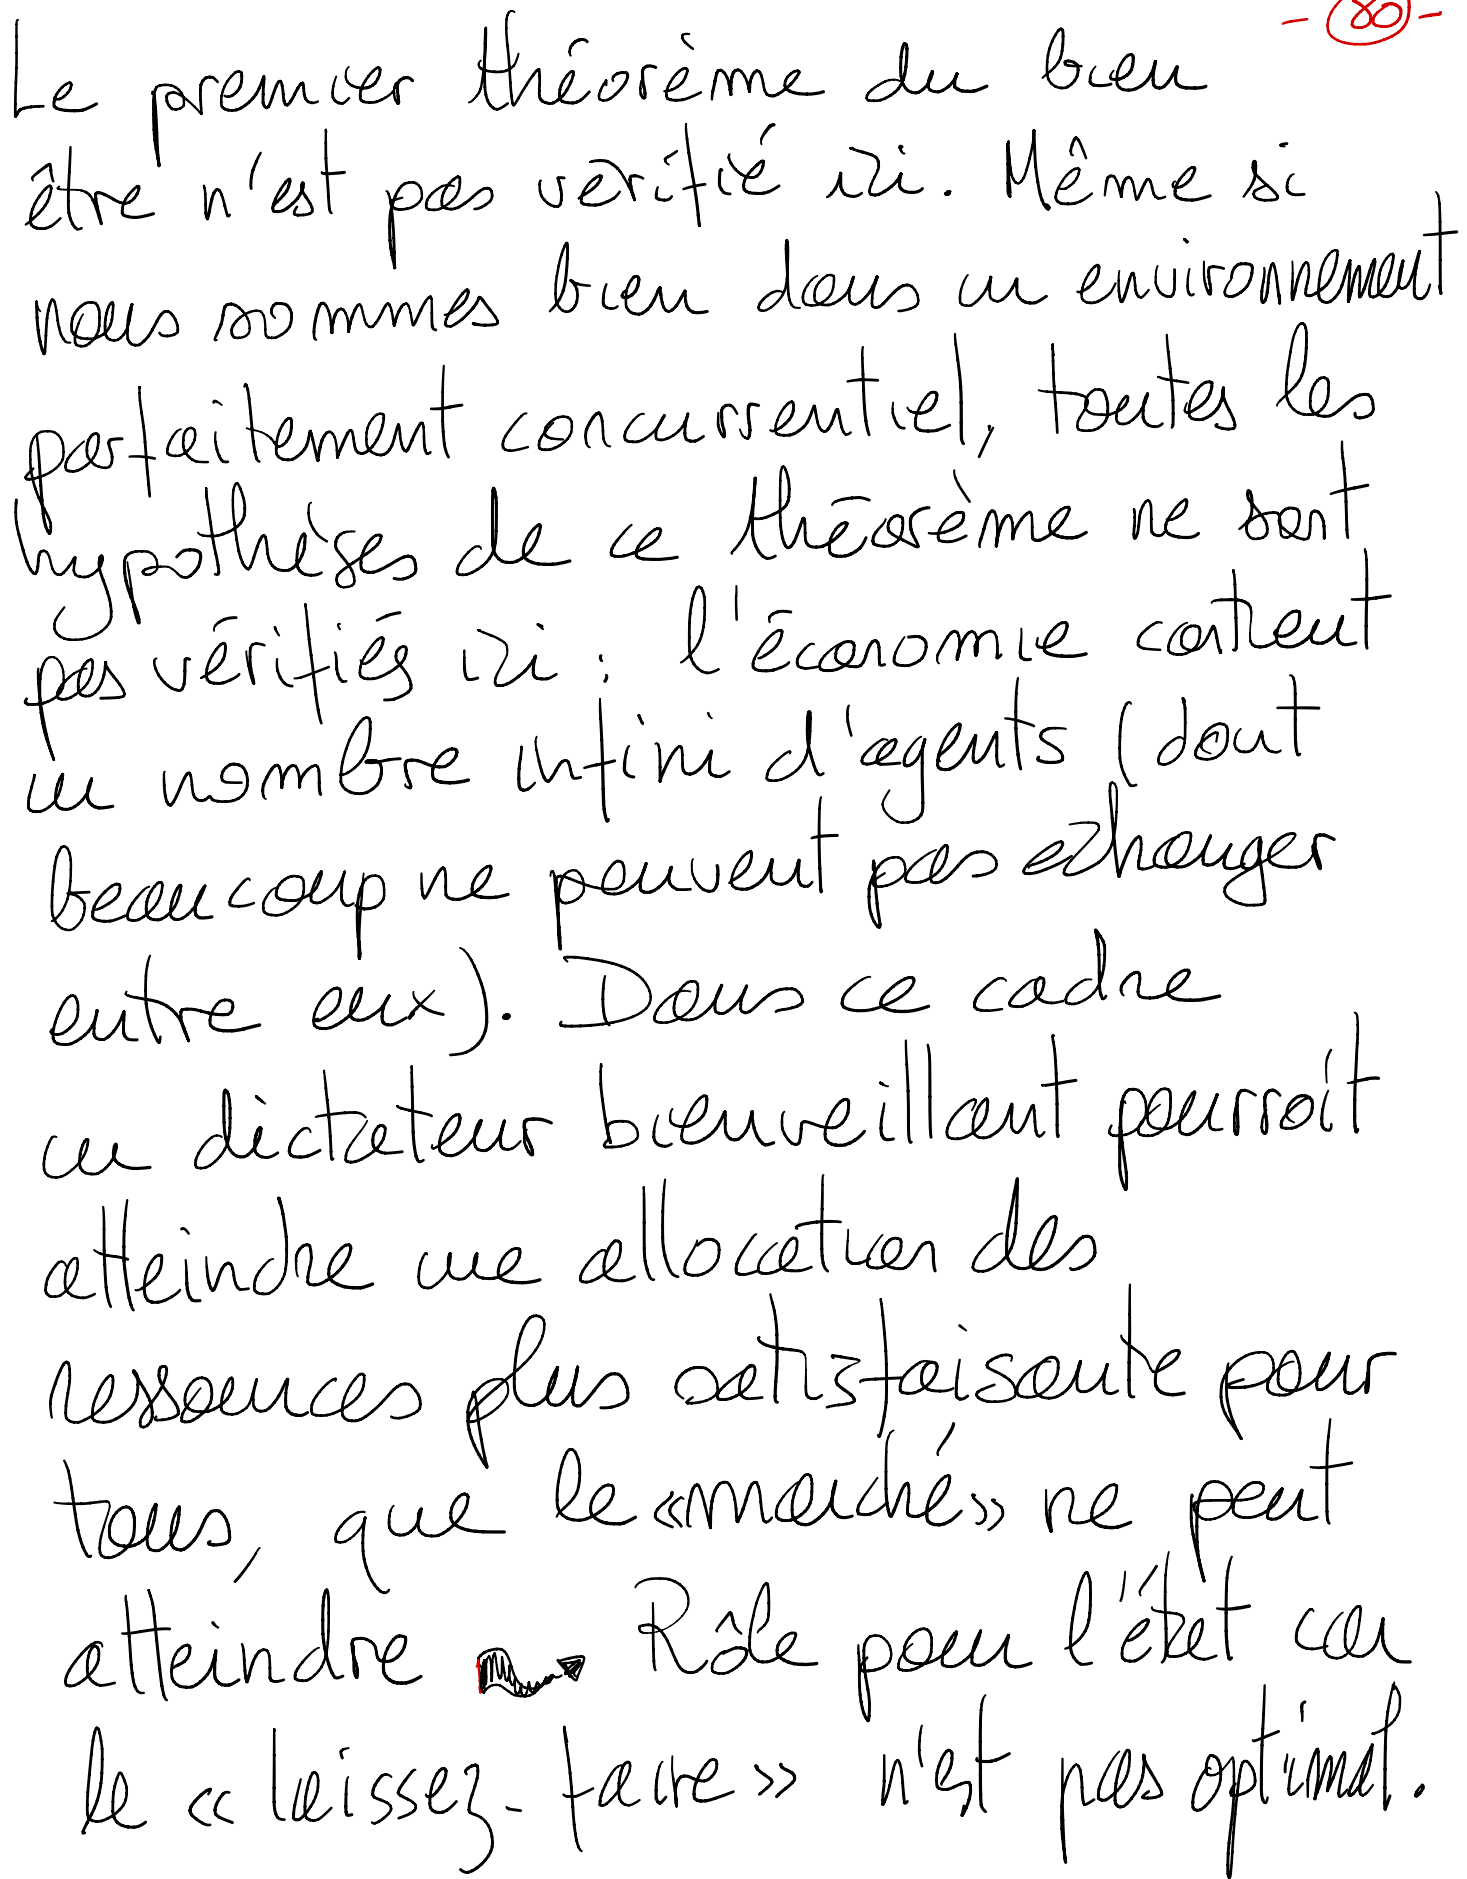 - 80 -
Le premier théorème du bien
être n'est pas vérifié ici. Même si
nous sommes bien dans un environnement
parfaitement concurrentiel, toutes les
hypothèses de ce théorème ne sont
pas vérifiés ici : l'économie contient
un nombre infini d'agents (dont
beaucoup ne peuvent pas echanger
entre eux). Dans ce cadre
un dictateur bienveillant pourrait
atteindre une allocation des
ressources plus satisfaisante pour
tous, que le «marché» ne peut
atteindre → Rôle pour l'état car
le « laissez-faire » n'est pas optimal.